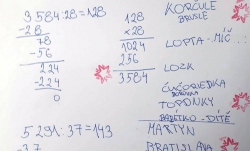 3584:28=128
-28
78
-56
224
-224
0
128
×28
1024
256
3584
KORČULE
BRUSLE
LOPTA-MÍČ
LOZK
ČUČORIEDKA
BORŮVKA
TOPÁNKY
DÍTĚ
MARTYN
BRATISLAVA
5291:37=143
-37